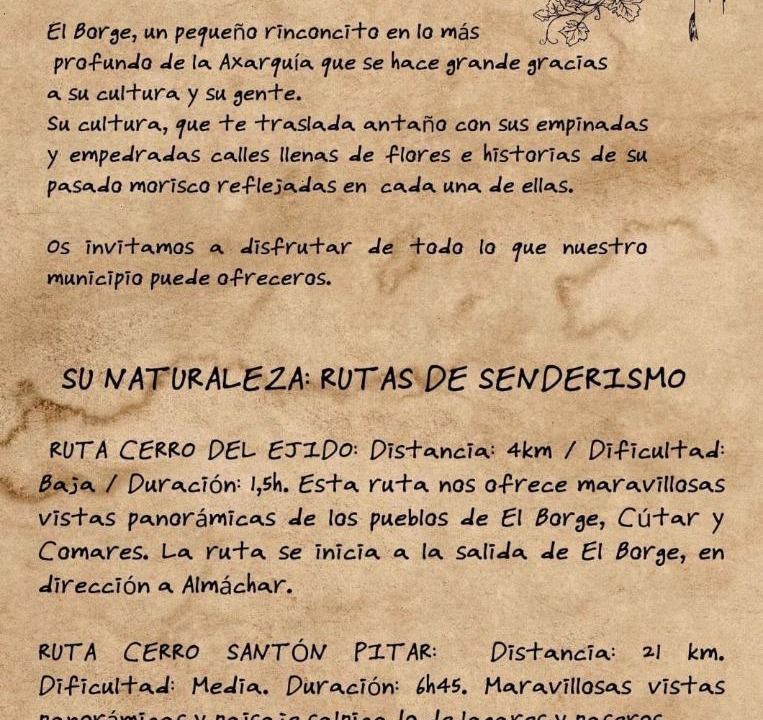 El Borge, un pequeño rinconcito en lo más
profundo de la Axarquía que se hace grande gracias
a su cultura y su gente.
Su cultura, que te traslada antaño con sus empinadas
y empedradas calles llenas de flores e historias de su
pasado morisco reflejadas en cada una de ellas.
Os invitamos a disfrutar de todo lo que nuestro
municipio puede ofreceros.
SU NATURALEZA: RUTAS DE SENDERISMO
RUTA CERRO DEL EJIDO: Distancia: 4km / Dificultad:
Baja / Duración: 1,5h. Esta ruta nos ofrece maravillosas
vistas panorámicas de los pueblos de El Borge, Cútar y
Comares. La ruta se inicia a la salida de El Borge, en
dirección a Almáchar.
RUTA CERRO SANTÓN PITAR: Distancia: 21 km.
Dificultad: Media. Duración: 6h45. Maravillosas vistas